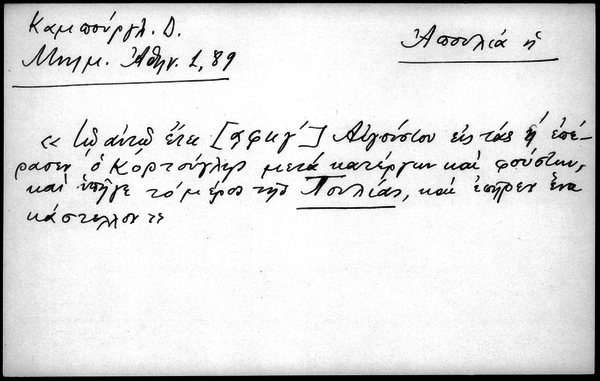 Καμπούργλ. Δ.
Μνημ. Ἀθην. 1, 89
Ἀπουλιά ἡ
« Τῷ αὐτῷ ἔτει [αφκγ´] Αὐγούστου εἰς τάς η´ ἐπέ-
ρασεν ὁ Κόρτσογλης μετά κατέργων καί φούστων,
καί ὑπῆγε τό μέρος τῆς Πουλίας, καί ἐπῆρεν ἕνα
κάστελλον τε